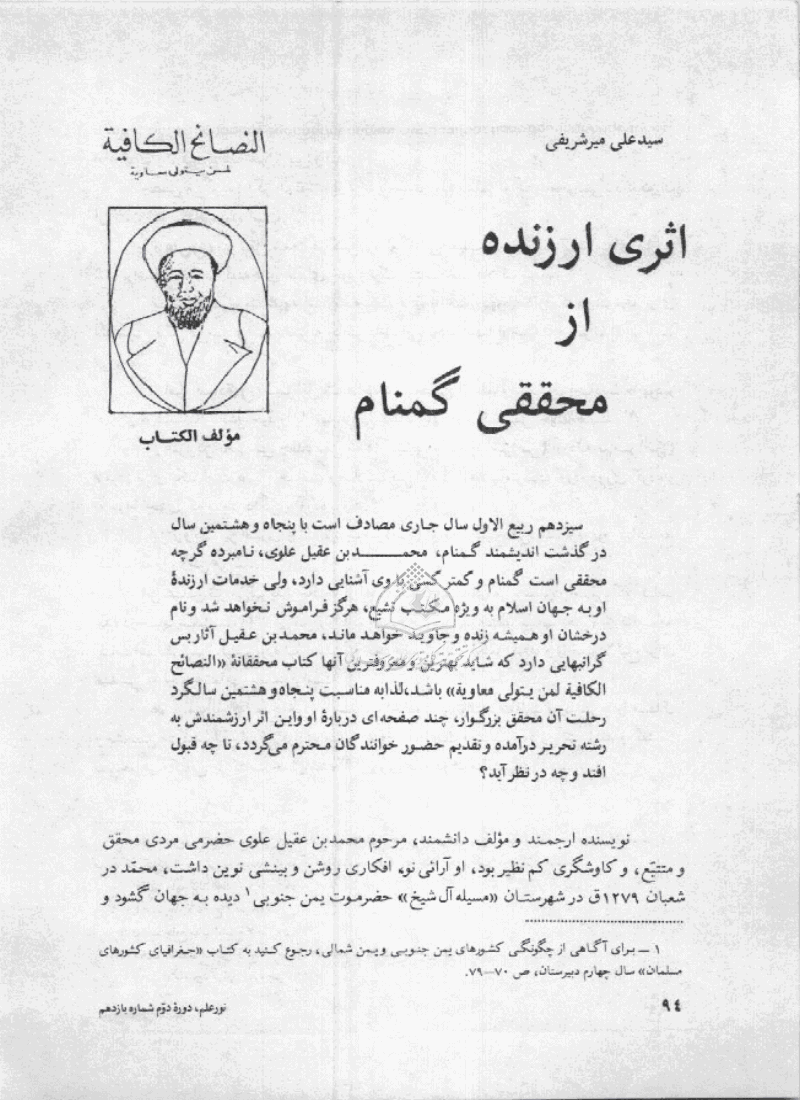 سیدعلی میرشریفی
النصائح الکافیة
لمن یتولی معاویة
اثری ارزنده
از
محققی گمنام
مؤلف الکتاب
سیزدهم ربیع الاول سال جاری مصادف است با پنجاه و هشتمین سال
درگذشت اندیشمند گمنام، محمـــــد بن عقیل علوی، نامبرده گرچه
محققی است گمنام و کمتر کسی با وی آشنایی دارد، ولی خدمات ارزندهٔ
او به جهان اسلام به ویژه مکتب تشیع، هرگز فراموش نخواهد شد و نام
درخشان او همیشه زنده و جاوید خواهد ماند، محمد بن عقیل آثار بس
گرانبهایی دارد که شاید بهترین و معروفترین آنها کتاب محققانهٔ «النصائح
الکافیة لمن یتولی معاویة» باشد، لذا به مناسبت پنجاه و هشتمین سالگرد
رحلت آن محقق بزرگوار، چند صفحه ای دربارهٔ او و این اثر ارزشمندش به
رشته تحریر درآمده و تقدیم حضور خوانندگان محترم می‌گردد، تا چه قبول
افتد و چه در نظر آید؟
نویسنده ارجمند و مؤلف دانشمند، مرحوم محمد بن عقیل علوی حضرمی مردی محقق
و متتبّع، و کاوشگری کم نظیر بود، او آرائی نو، افکاری روشن و بینشی نوین داشت، محمّد در
شعبان ۱۲۷۹ق در شهرستان «مسیله آل شیخ» حضرموت یمن جنوبی۱ دیده به جهان گشود و
۱ ــ برای آگاهی از چگونگی کشورهای یمن جنوبی و یمن شمالی، رجوع کنید به کتاب «جغرافیای کشورهای
مسلمان» سال چهارم دبیرستان، ص ۷۰—۷۹.
۹۴
نورعلم، دورهٔ دوّم شماره یازدهم